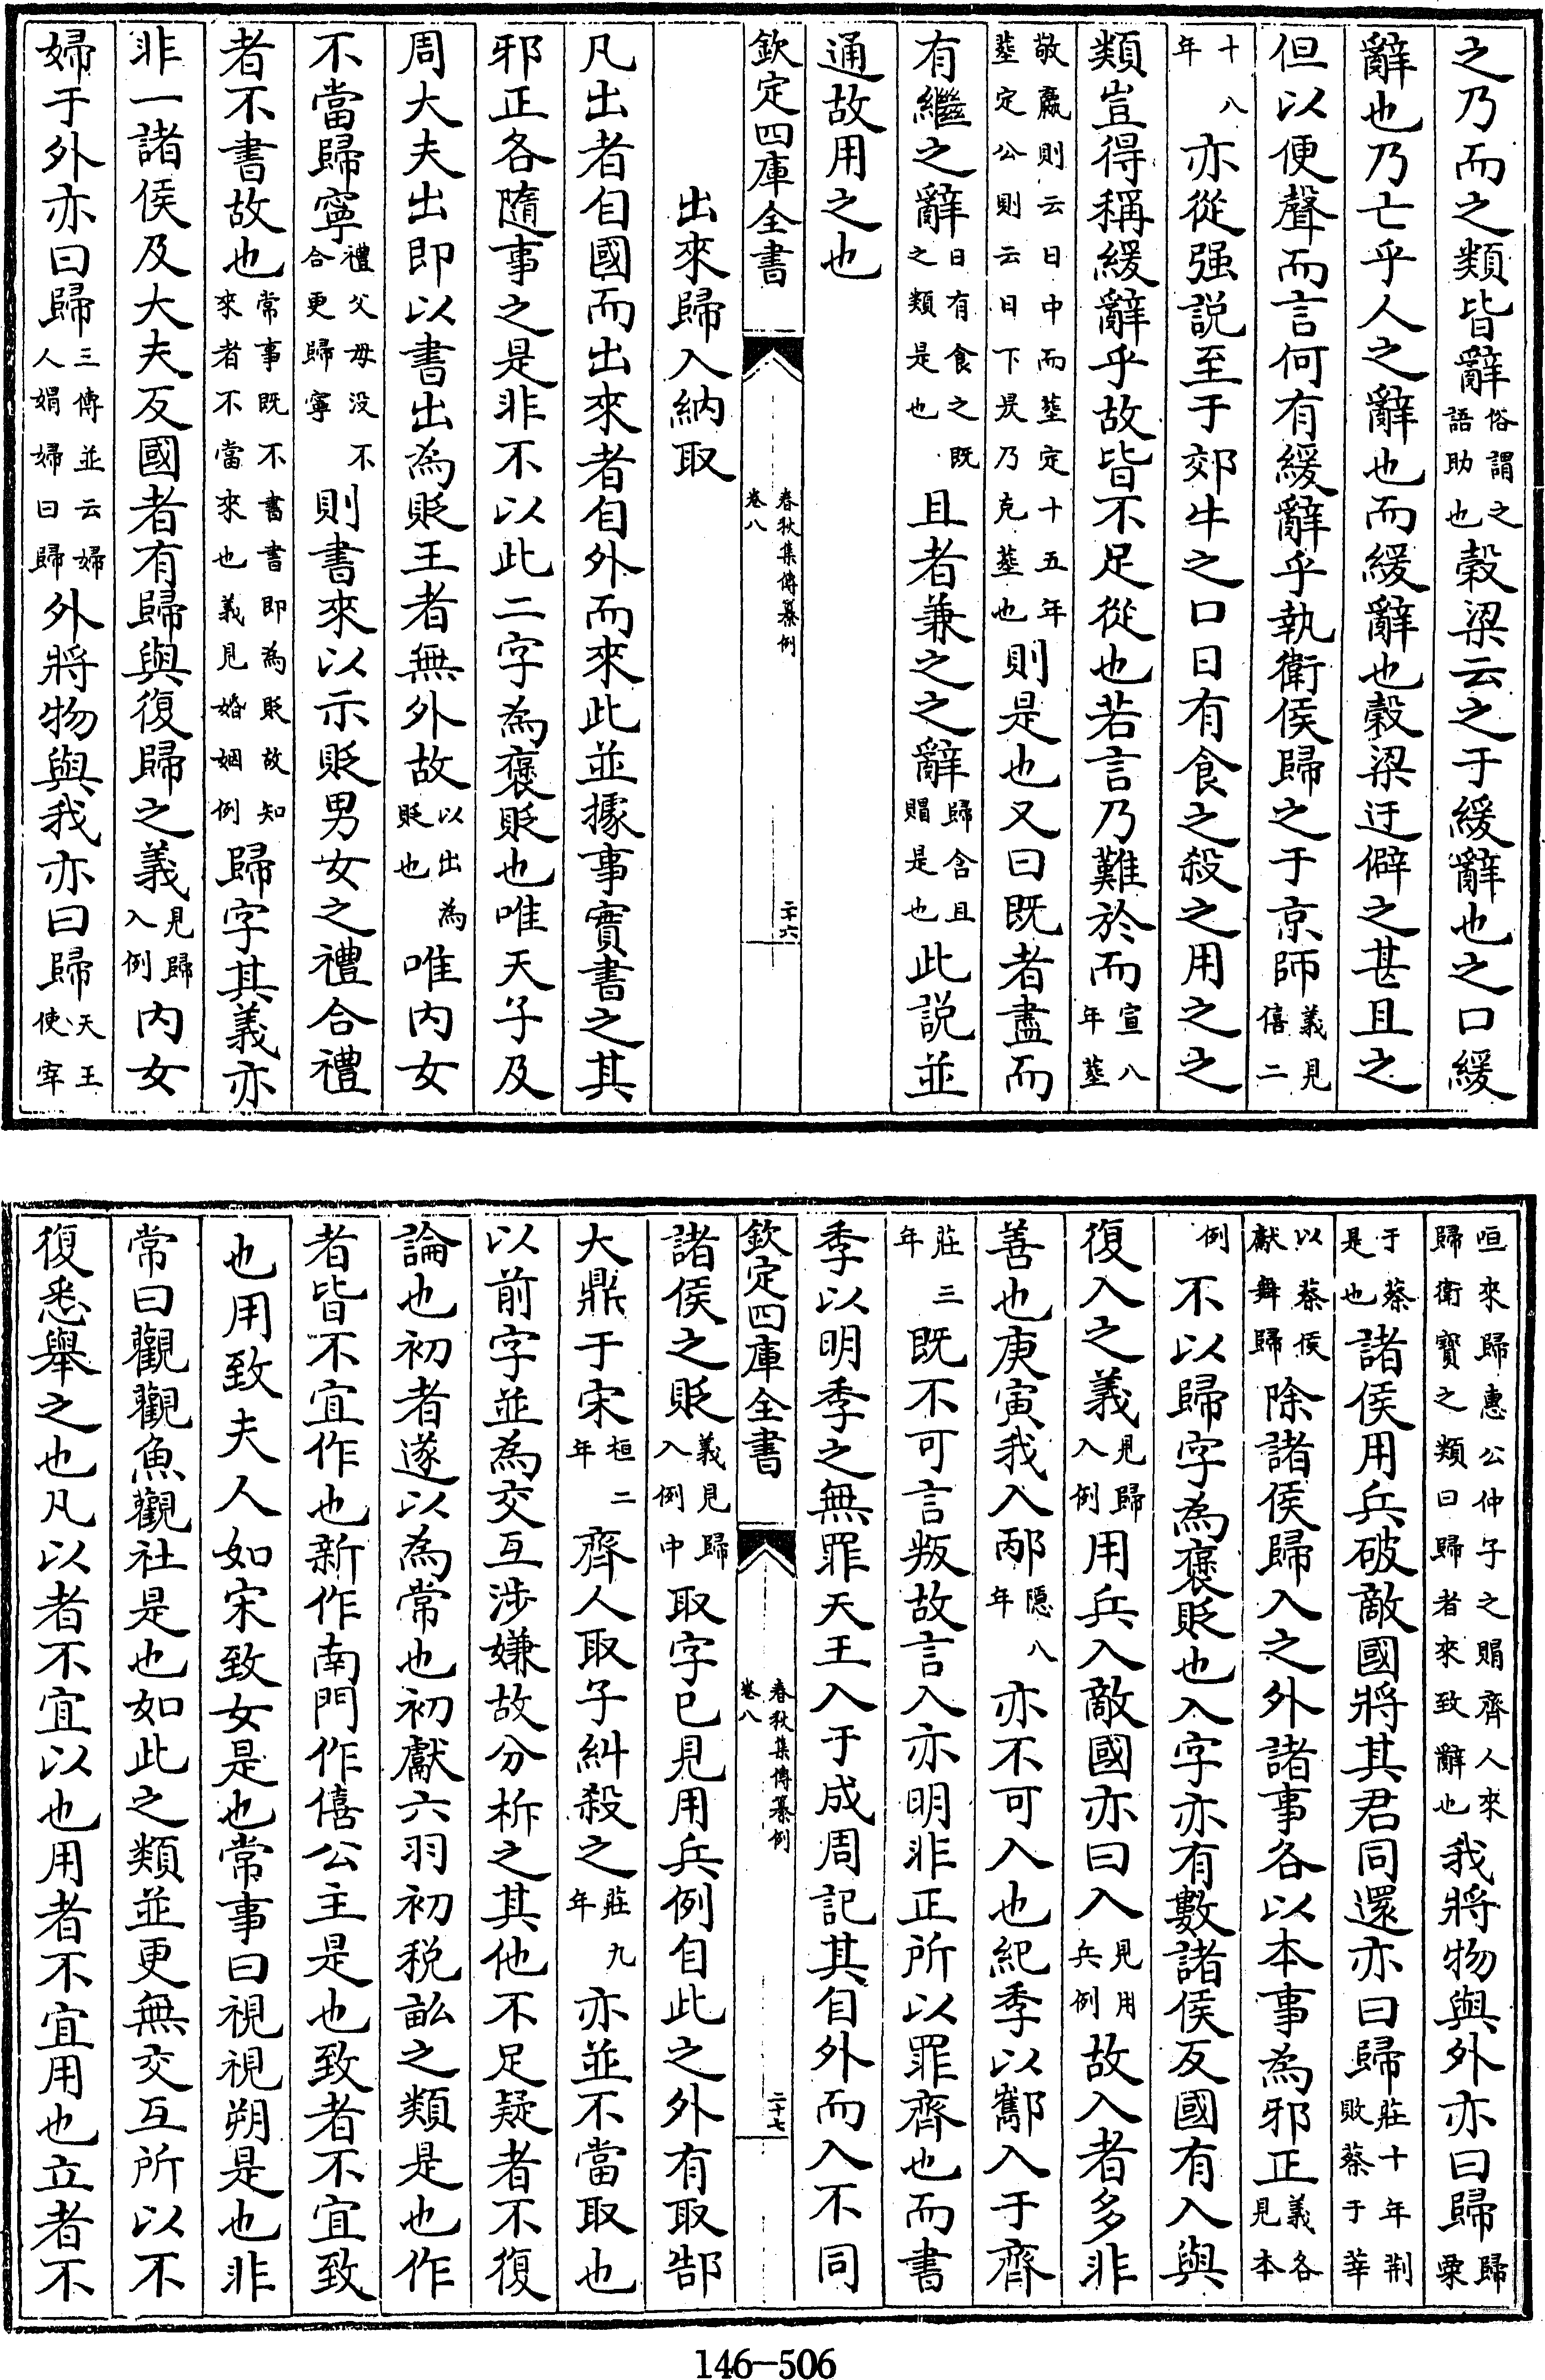 之乃而之類皆辭俗謂之語助也穀梁云之于緩辭也之口緩
辭也乃亡乎人之辭也而緩辭也穀梁迂僻之甚且之
但以便聲而言何有緩辭乎執衛侯歸之于京師義見僖二
十八年亦從强説至于郊牛之口日有食之殺之用之之
類豈得稱緩辭乎故皆不足從也若言乃難於而宣八年葬
敬嬴則云日中而葬定十五年葬定公則云日下昃乃克葬也則是也又曰既者盡而
有繼之辭日有食之既之類是也且者兼之之辭歸含且賵是也此説並
通故用之也
欽定四庫全書
春秋集傳纂例
卷八
二十六
出來歸入納取
凡出者自國而出來者自外而來此並據事實書之其
邪正各隨事之是非不以此二字為褒貶也唯天子及
周大夫出即以書出為貶王者無外故以出為貶也唯内女
不當歸寧禮父母没不合更歸寧則書來以示貶男女之禮合禮
者不書故也常事既不書書即為貶故知來者不當來也義見婚姻例歸字其義亦
非一諸侯及大夫反國者有歸與復歸之義見歸入例内女
婦于外亦曰歸三傳並云婦人娟婦曰歸外將物與我亦曰歸天王使宰
咺來歸惠公仲子之賵齊人來歸衛寶之類曰歸者來致辭也我將物與外亦曰歸歸粟
于蔡是也諸侯用兵破敵國將其君同還亦曰歸莊十年荆敗蔡于莘
以蔡侯獻舞歸除諸侯歸入之外諸事各以本事為邪正義各見本
例不以歸字為褒貶也入字亦有數諸侯反國有入與
復入之義見歸入例用兵入敵國亦曰入見用兵例故入者多非
善也庚寅我入邴隱八年亦不可入也紀季以酅入于齊
莊三年既不可言叛故言入亦明非正所以罪齊也而書
季以明季之無罪天王入于成周記其自外而入不同
欽定四庫全書
春秋集傳纂例
卷八
二十七
諸侯之貶義見歸入例中取字已見用兵例自此之外有取郜
大鼎于宋桓二年齊人取子糾殺之莊九年亦並不當取也
以前字並為交互涉嫌故分柝之其他不足疑者不復
論也初者遂以為常也初獻六羽初税畝之類是也作
者皆不宜作也新作南門作僖公主是也致者不宜致
也用致夫人如宋致女是也常事曰視視朔是也非
常曰觀觀魚觀社是也如此之類並更無交互所以不
復悉舉之也凡以者不宜以也用者不宜用也立者不
146-506